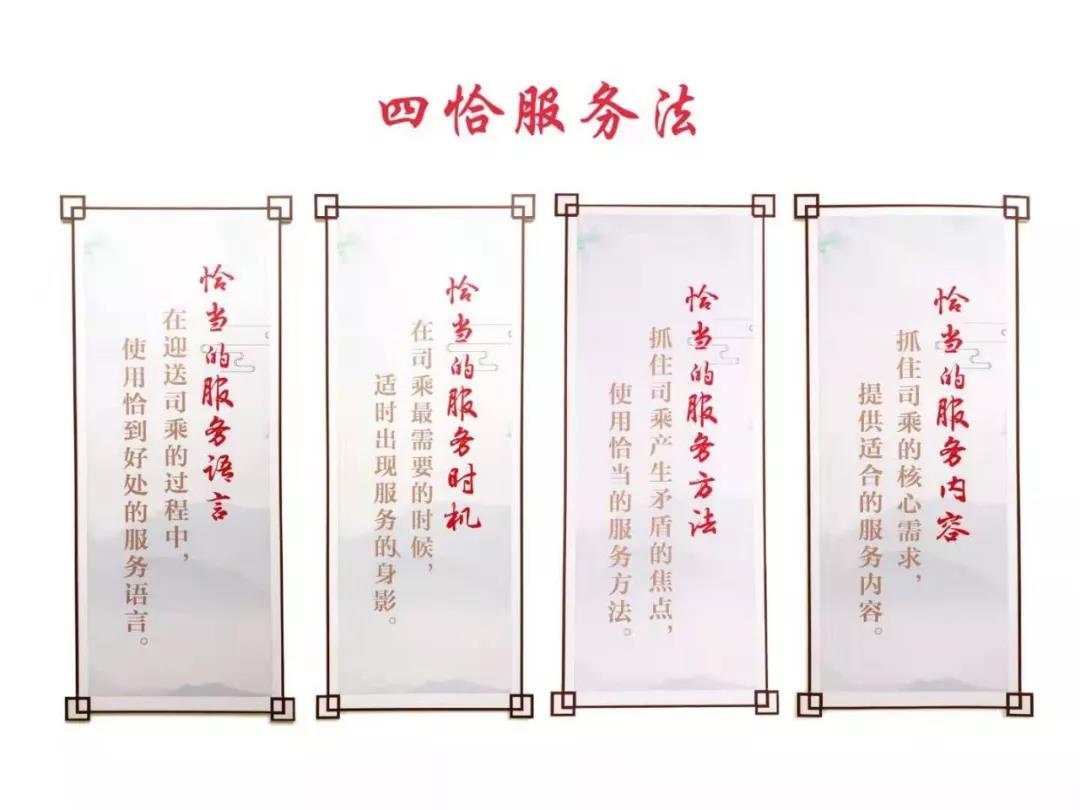 四恰服务法
恰当的服务语言
在迎送司乘的过程中，
使用恰到好处的服务语言。
恰当的服务时机
在司乘最需要的时候，
适时出现服务的身影。
恰当的服务方法
抓住司乘产生矛盾的焦点，
使用恰当的服务方法。
恰当的服务内容
抓住司乘的核心需求，
提供适合的服务内容。